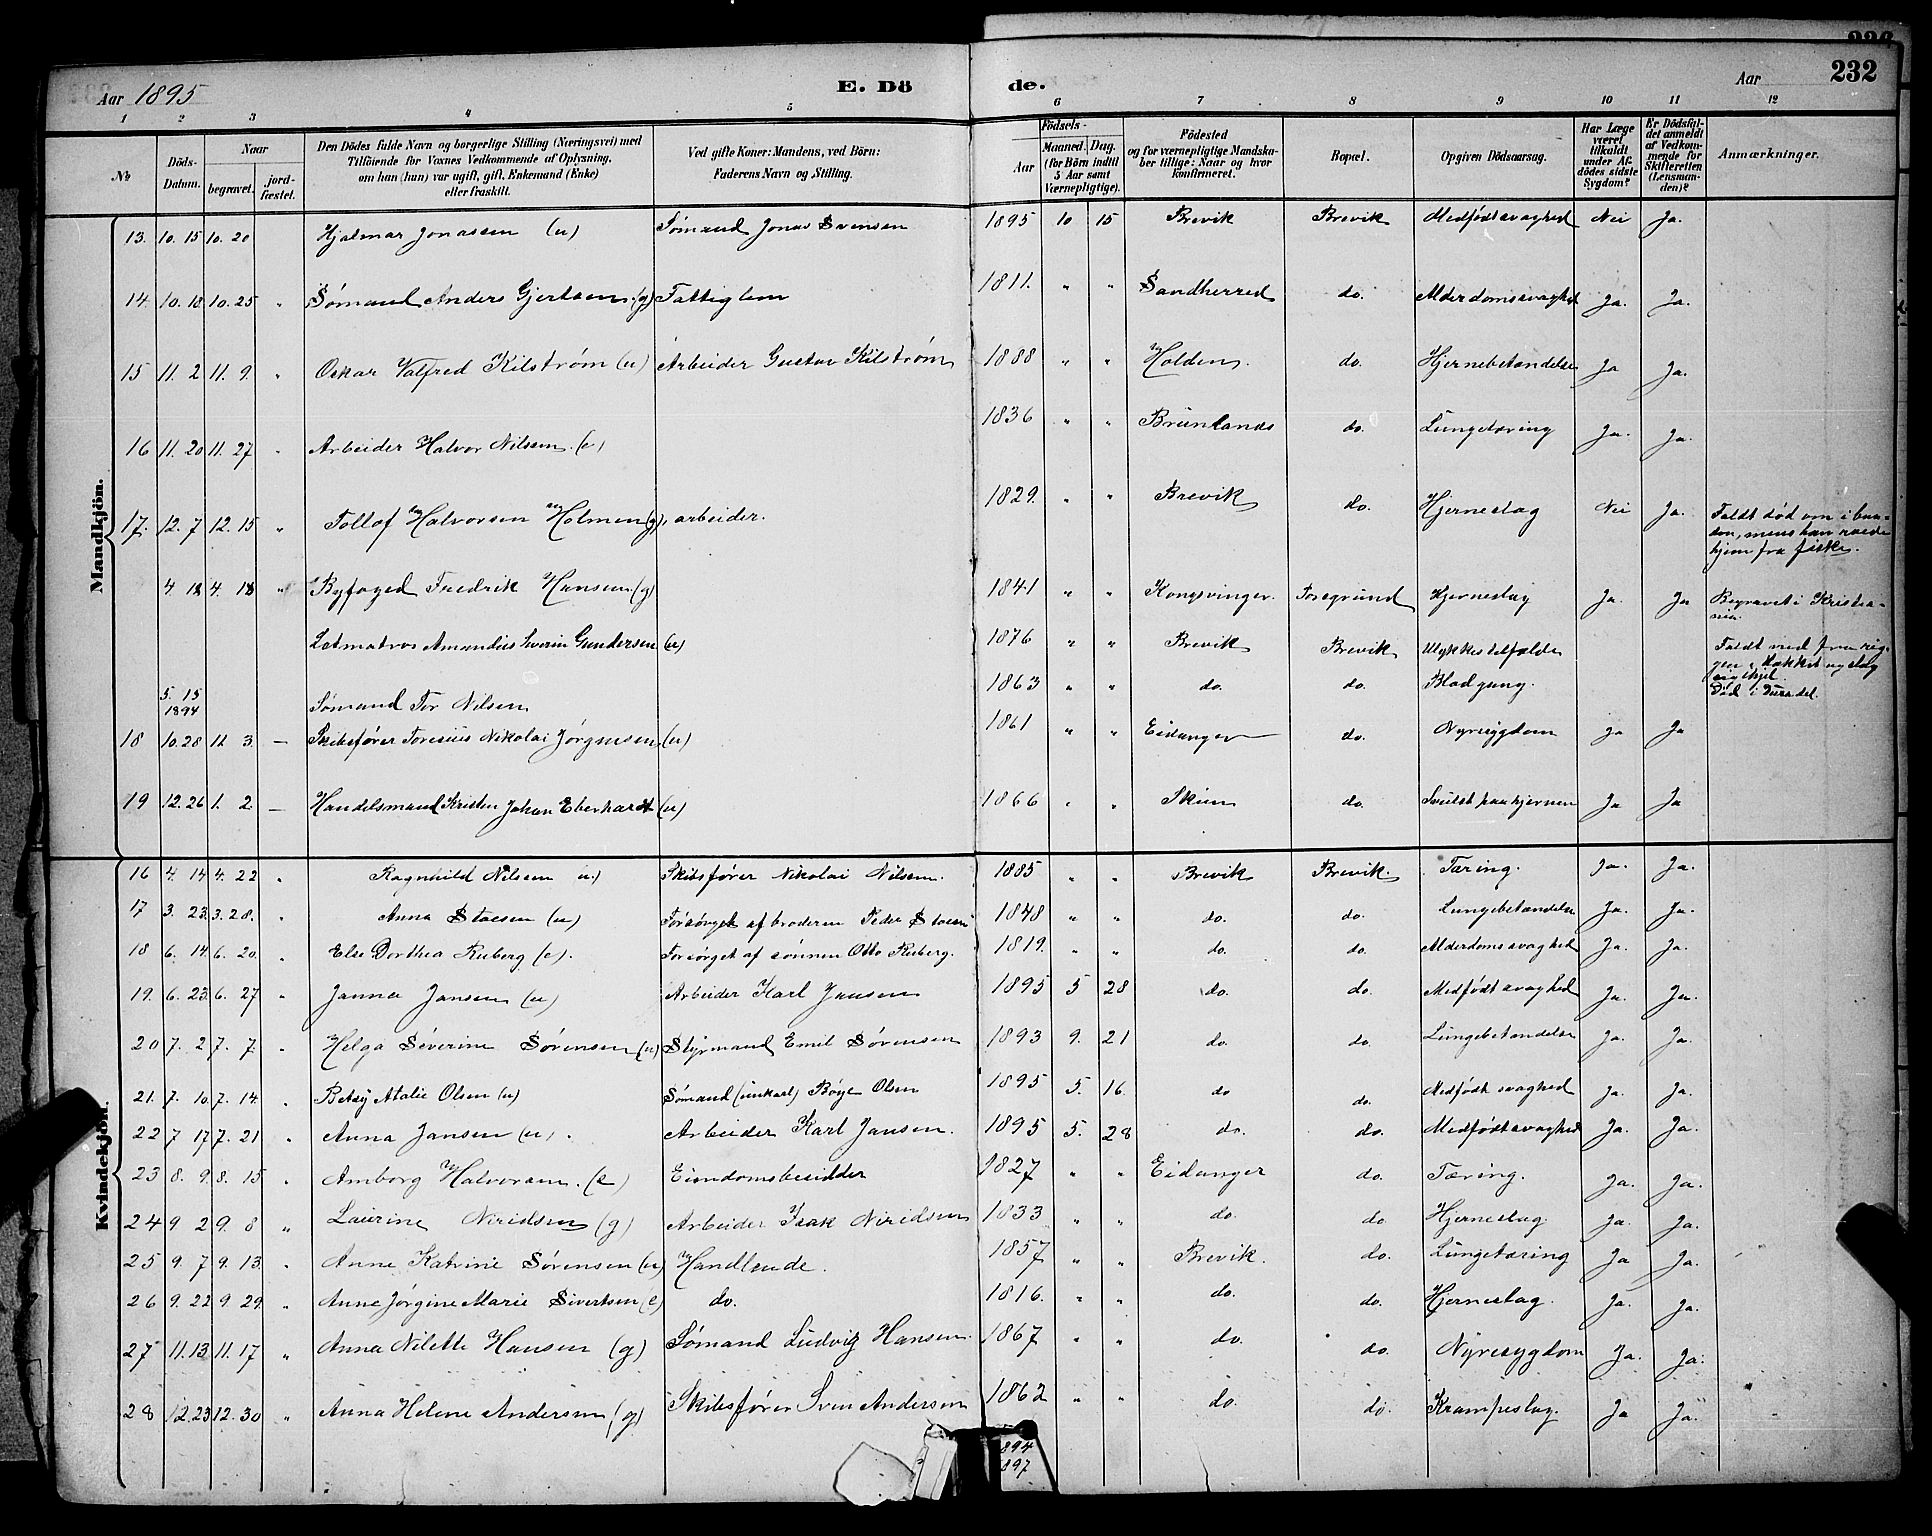 Aar 1895 E. Dö de. Aar 232
1 2 3 4 5 6 7 8 9 10 11 12
№ Döds-Datum. Naar begravet. jord-fæstet. Den Dödes fulde Navn og borgerlige Stilling (Næringsvei) med Tilföiende for Voxnes Vedkommende af Oplysning, om han (hun) var ugift, gift, Enkemand (Enke) eller fraskilt. Ved gifte Koner: Mandens, ved Börn: Faderens Navn og Stilling. Födsels- Aar Maaned. Dag. (for Börn indtil 5 Aar samt Værnepligtige). Födested og for værnepligtige Mandskaber tillige: Naar og hvor konfirmeret. Bopæl. Opgiven Dödsaarsag. Har Læge været tilkaldt under Afdödes sidste Sygdom? Er Dödsfaldet anmeldt af Vedkommende for Skifteretten (Lensmanden)? Anmærkninger.
Mandkjön.
13. 10. 15 10. 20 Hjalmar Jonassen (u) Sømand Jonas Svensen 1895 10 15 Brevik Brevik Medfødt svaghed Nei Ja.
14. 10. 18. 10. 25 " Sømand Anders Gjertsen (g) Fattiglem 1811. " " Sandherred do. Alderdomssvaghed Ja. Ja.
15 11. 2 11. 9. " Oskar Valfred Kilstrøm (u) Arbeider Gustav Kilstrøm 1888 " " Holden. do. Hjernebetændelse Ja Ja.
16 11. 20 11. 27 " Arbeider Halvor Nilsen. (e) 1836 " " Brunlanæs do. Lungetæring Ja. Ja.
17. 12. 7 12. 15 " Tollof Halvorsen Holmen (g), arbeider. 1829. " " Brevik do. Hjerneslag Nei Ja. Faldt død om i baa-
den, mens han roede
hjem fra fiske.
4. 12 4. 18 " Byfoged Fredrik Hansen (g) 1841 " " Kongsvinger. Porsgrund Hjerneslag Ja. Ja Begravet i Kristia-
nia.
Letmatros Amandus Severin Gundersen (u) 1876 " " Brevik Brevik Ulykkestilfælde Faldt ned fra rig-
gen i dækket og slog
sig ihjel.
5. 15 1894 Sømand Tor Nilsen 1863 " " do. do. Blodgang. Død i
18 10. 28 11 3. — Skibsfører Toresius Nikolai Jørgensen (u) 1861 " " Eidanger do. Nyresygdom Ja Ja
19 12. 26 1. 2. — Handelsmand Kristen Johan Eberhardt (u) 1866 " " Skien do. Svulst paa hjernen Ja Ja
Kvindekjön.
16 4. 14 4. 22 " Ragnhild Nilsen u) Skibsfører Nikolai Nilsen. 1885 " " Brevik Brevik. Tæring. Ja. Ja.
17 3. 23. 3. 28. " Anna Stœsen (u) Forsørget af broderen Peder Stœsen 1848 " " do. do. Lungebetændelse Ja. Ja.
18 6. 14. 6. 20. " Else Dorthea Ruberg (e). Forsørget af sønnen Otto Ruberg. 1819. " " do. do. Alderdomssvaghed Ja. Ja.
19. 6. 23. 6. 27 " Janna Jansen (u) Arbeider Karl Jansen 1895 5 28 do. do. Medfødt svaghed Ja. Ja.
20 7. 2 7. 7. " Helga Severine Sørensen (u) Styrmand Emil Sørensen 1893 9. 21 do. do. Lungebetændelse Ja. Ja.
21. 7. 10. 7. 14. " Betsy Atalie Olsen (u) Sømand (unkarl) Børge Olsen 1895 5. 16. do do. Medfødt svaghed Ja. Ja.
22 7 17 7. 21 " Anna Jansen (u). Arbeider Karl Jansen. 1895 5. 28 do. do. Medfødt svaghed Ja. Ja.
23 8. 9. 8. 15 " Amborg Halvorsen. (e) Eiendomsbesidder 1827 " " Eidanger do. Tæring. Ja. Ja.
24 9 2 9. 8 " Laurine Niridsen (g) Arbeider Isak Niridsen 1833 " " do. do. Hjerneslag. Ja. Ja.
25 9. 7 9. 13. " Anne Katrine Sørensen (u) Handlende. 1857 " " Brevik. do. Lungetæring Ja Ja.
26 9. 22 9. 29. " Anne Jørgine Marie Sivertsen (e) do. 1816. " " do. do. Hjerneslag. Ja. Ja.
27 11. 13 11. 17 " Anna Nilette Hansen (g) Sømand Ludvig Hansen. 1867 " " do. do. Nyresygdom Ja. Ja.
28 12. 23 12. 30 " Anna Helene Andersen (g) Skibsfører Sven Andersen 1862 " " do. do. Krampeslag. Ja Ja.
1894
1897